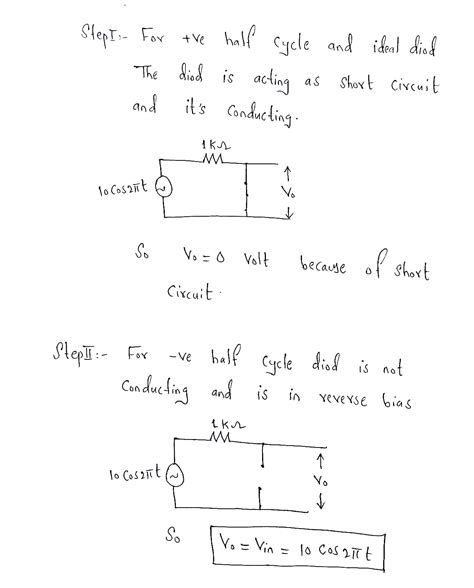 Step I:- For +ve half cycle and ideal diod
The diod is acting as short circuit
and it's conducting.
1kΩ
10 cos2πt
~
Vo
So Vo = 0 Volt because of short
circuit.
Step II:- For -ve half cycle diod is not
conducting and is in reverse bias
1kΩ
10 cos2πt
~
Vo
So Vo = Vin = 10 cos2πt